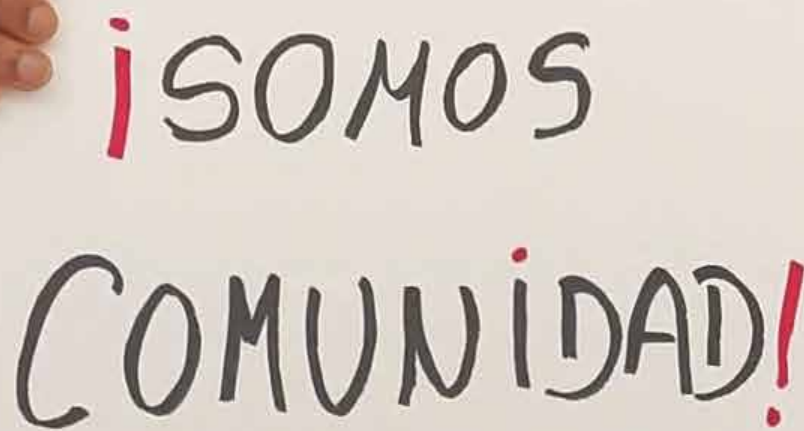 ¡SOMOS
COMUNiDAD!